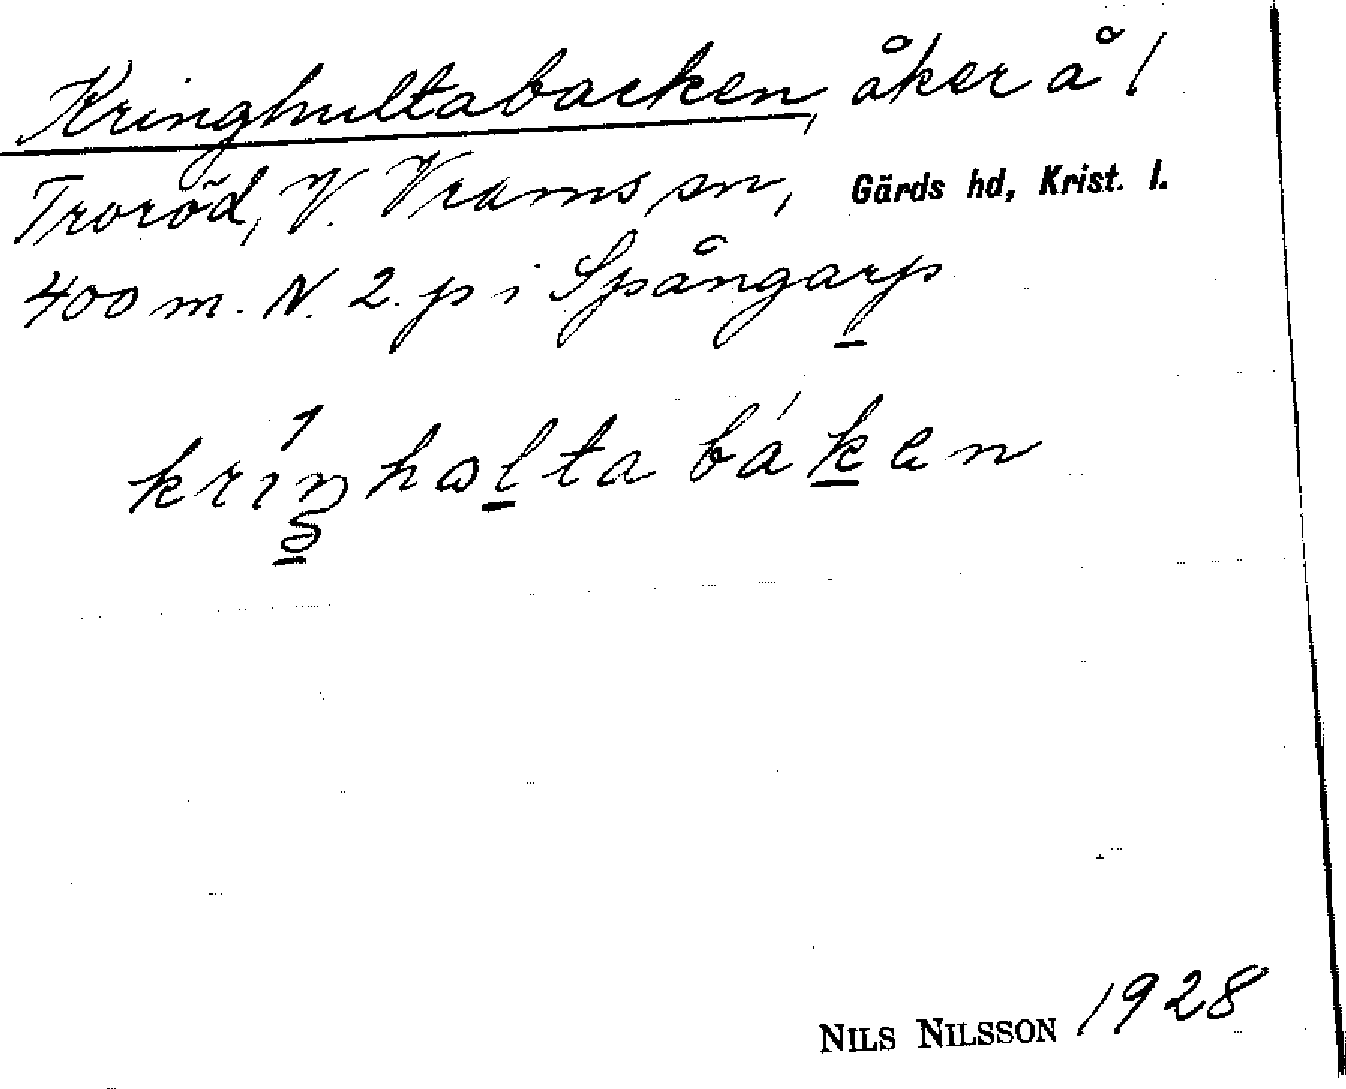 Kringhultabacken, åker å 1
Troröd, V. Vrams sn, Gärds hd, Krist. l.
400 m. N. 2. p i Spångarp
kriŋhɷlta bákan
NILS NILSSON 1928